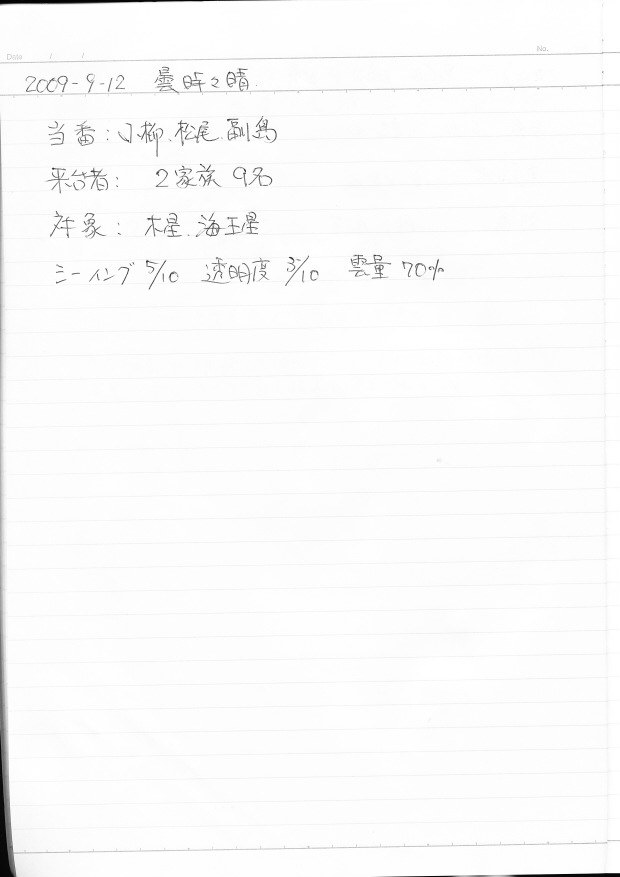 Date / /
No.
2009-9-12 曇時々晴.
当番: 小柳.松尾.副島
来台者: 2家族 9名
対象: 木星.海王星
シーイング 5/10 透明度 3/10 雲量 70%